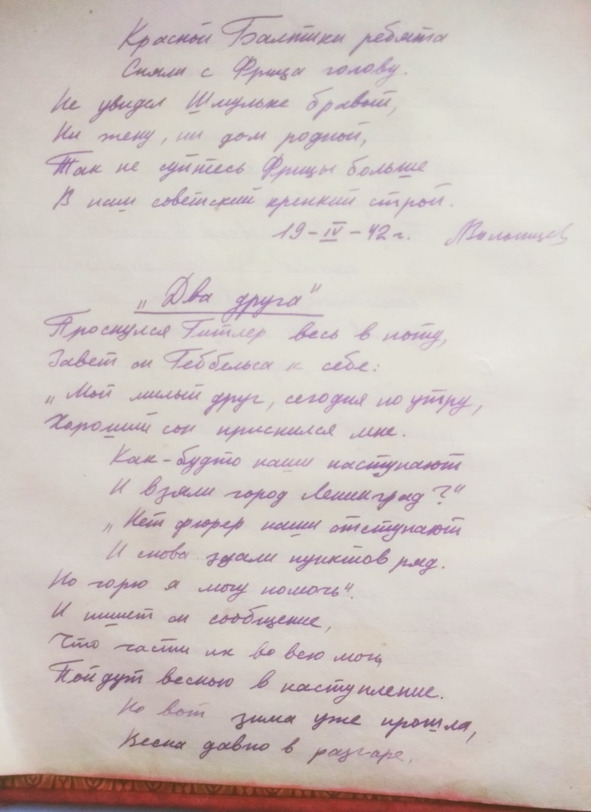 Красной Балтики ребята
Сняли с Фрица голову.
Не увидел Шмульке бравый,
Ни жену, ни дом родной,
Так не суйтесь Фрицы больше
В наш советский крепкий строй.
19-IV-42г.
„Два друга"
Проснулся Гитлер весь в поту,
Завет он Геббельса к себе:
„Мой милый друг, сегодня по утру,
Хороший сон приснился мне.
Как-будто наши наступают
И взяли город Ленинград?"
„Нет фюрер наши отступают
И снова здали пунктов ряд.
Но горю я могу помочь".
И пишет он сообщение,
Что части их во всю мочь
Пойдут весною в наступление.
Но вот зима уже прошла,
Весна давно в разгаре,